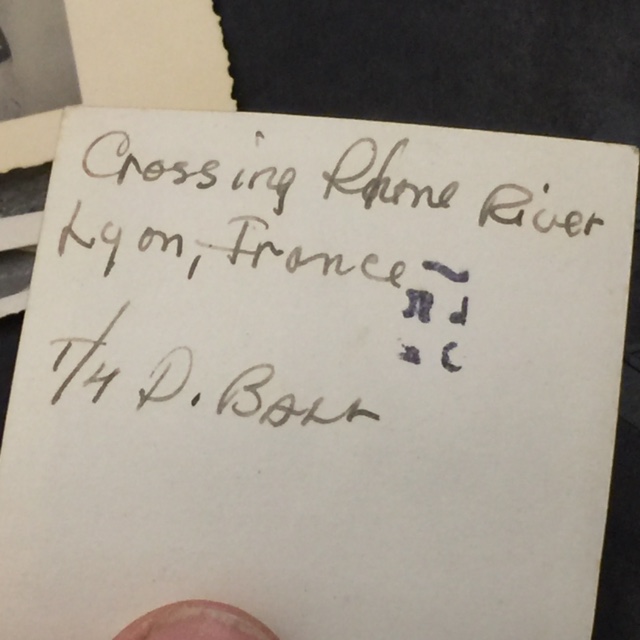 Crossing Rhone River
Lyon, France
T/4 D. Ball